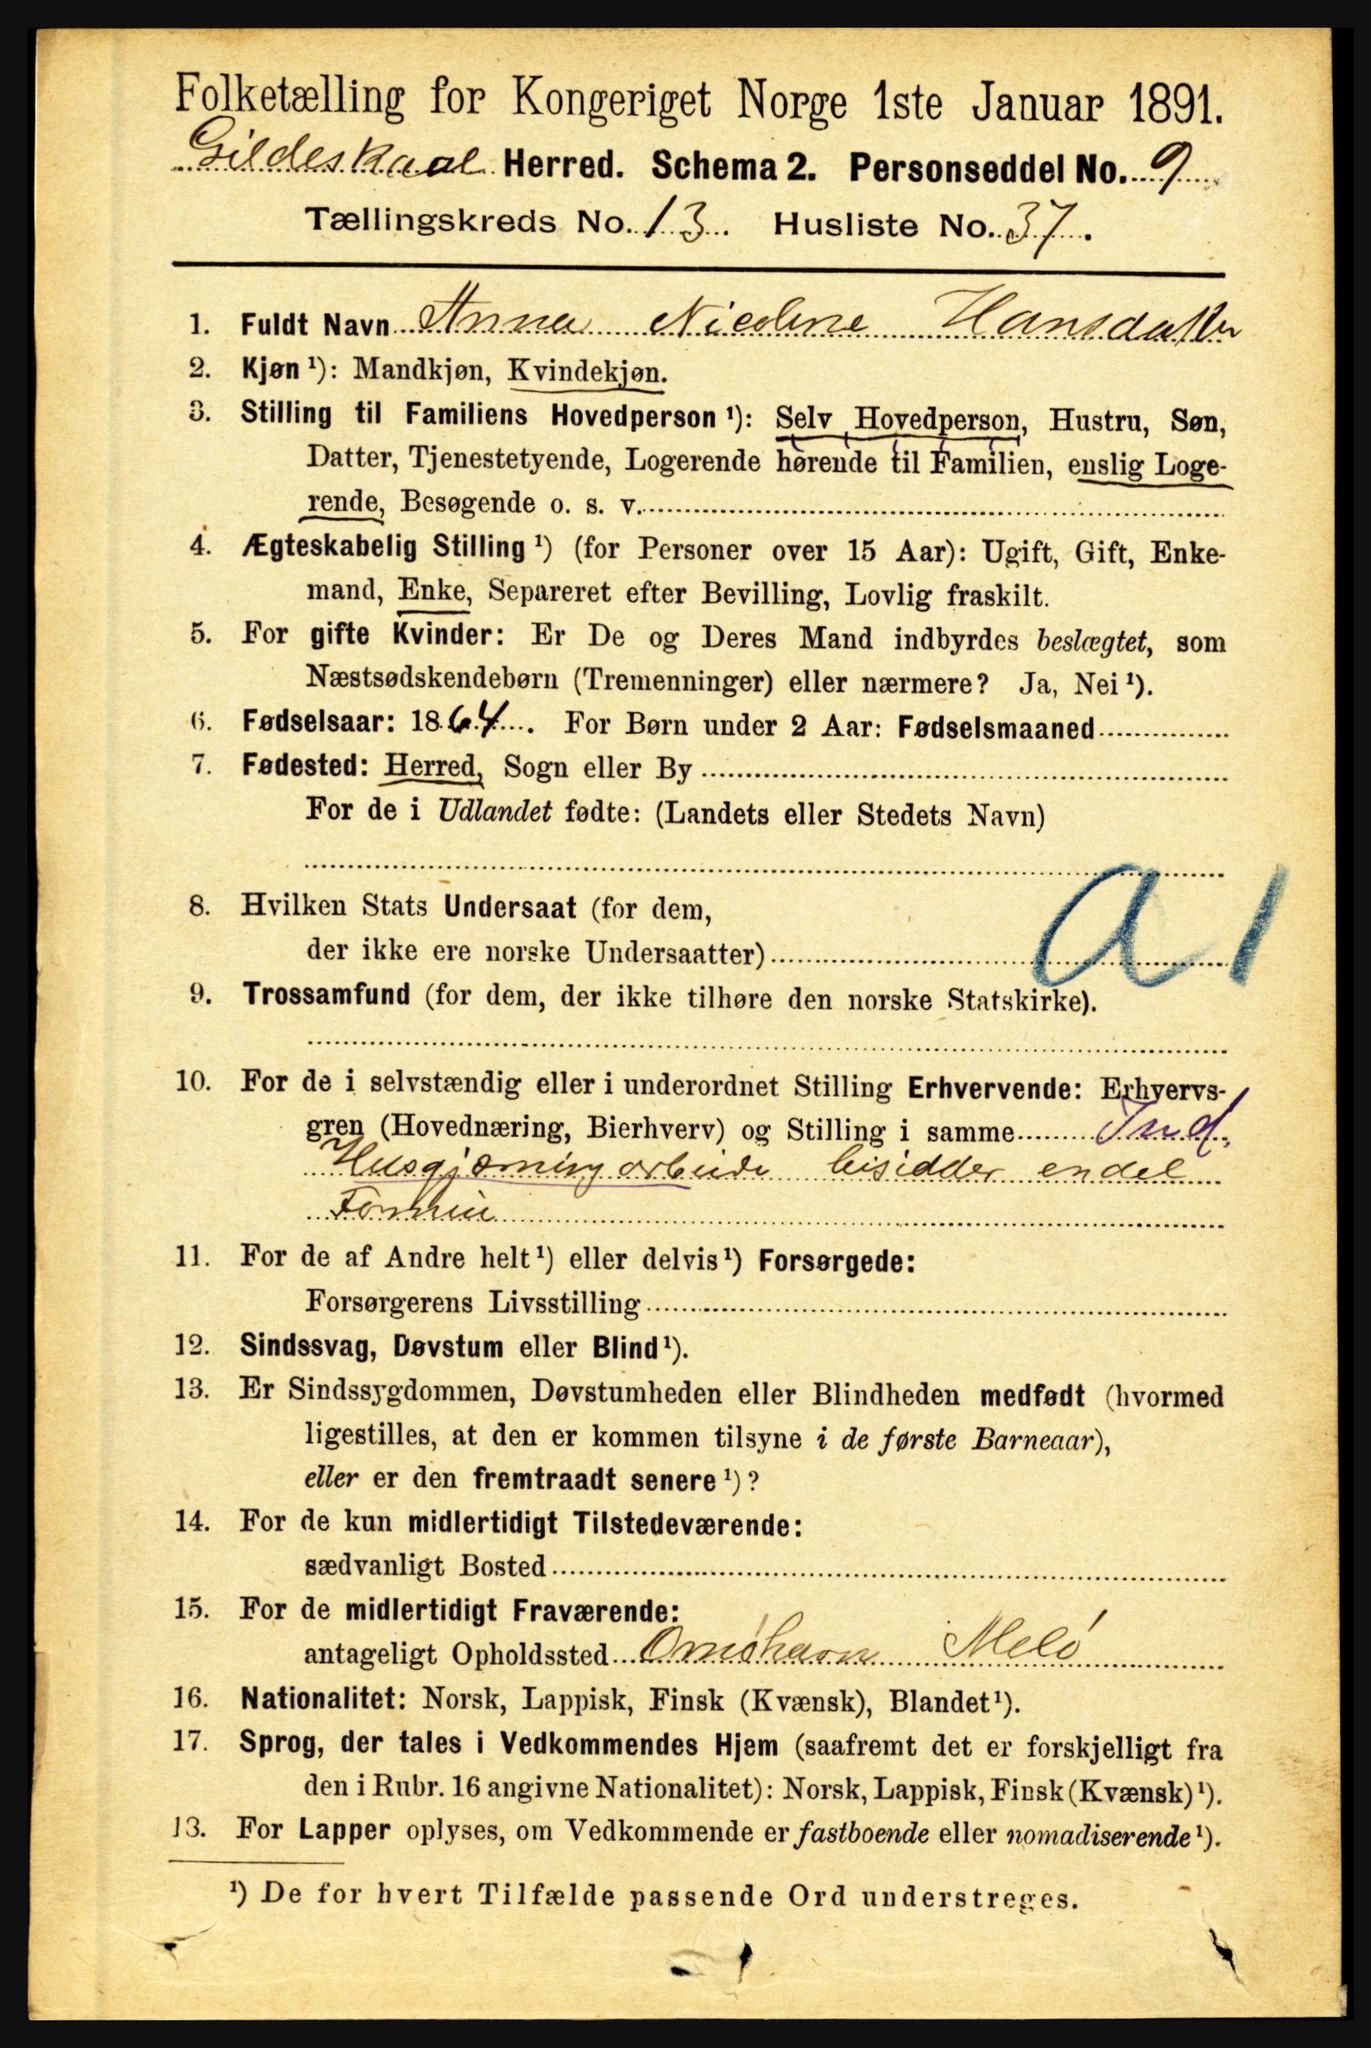 Folketælling for Kongeriget Norge 1ste Januar 1891.
Gildeskaal Herred. Schema 2. Personseddel No. 9
Tællingskreds No. 13. Husliste No. 37.
1. Fuldt Navn Anna Nicoline Hansdatter
2. Kjøn ¹): Mandkjøn, Kvindekjøn.
3. Stilling til Familiens Hovedperson ¹): Selv Hovedperson, Hustru, Søn,
Datter, Tjenestetyende, Logerende hørende til Familien, enslig Loge-
rende, Besøgende o. s. v.
4. Ægteskabelig Stilling ¹) (for Personer over 15 Aar): Ugift, Gift, Enke-
mand, Enke, Separeret efter Bevilling, Lovlig fraskilt.
5. For gifte Kvinder: Er De og Deres Mand indbyrdes beslægtet, som
Næstsødskendebørn (Tremenninger) eller nærmere? Ja, Nei ¹).
6. Fødselsaar: 1864. For Børn under 2 Aar: Fødselsmaaned
7. Fødested: Herred, Sogn eller By
For de i Udlandet fødte: (Landets eller Stedets Navn)
a 1
8. Hvilken Stats Undersaat (for dem,
der ikke ere norske Undersaatter)
9. Trossamfund (for dem, der ikke tilhøre den norske Statskirke).
10. For de i selvstændig eller i underordnet Stilling Erhvervende: Erhvervs-
gren (Hovednæring, Bierhverv) og Stilling i samme Ind.
Husgjerning arbeide endel
11. For de af Andre helt ¹) eller delvis ¹) Forsørgede:
Forsørgerens Livsstilling
12. Sindssvag, Døvstum eller Blind ¹).
13. Er Sindssygdommen, Døvstumheden eller Blindheden medfødt (hvormed
ligestilles, at den er kommen tilsyne i de første Barneaar),
eller er den fremtraadt senere ¹)?
14. For de kun midlertidigt Tilstedeværende:
sædvanligt Bosted
15. For de midlertidigt Fraværende:
antageligt Opholdssted Ornøhavn Melø
16. Nationalitet: Norsk, Lappisk, Finsk (Kvænsk), Blandet ¹).
17. Sprog, der tales i Vedkommendes Hjem (saafremt det er forskjelligt fra
den i Rubr. 16 angivne Nationalitet): Norsk, Lappisk, Finsk (Kvænsk) ¹).
13. For Lapper oplyses, om Vedkommende er fastboende eller nomadiserende ¹).
¹) De for hvert Tilfælde passende Ord understreges.